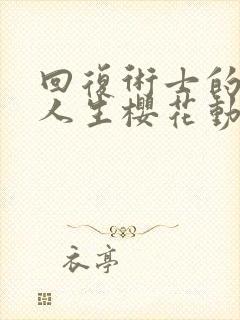 回復術士的
人生櫻花動
衣亭